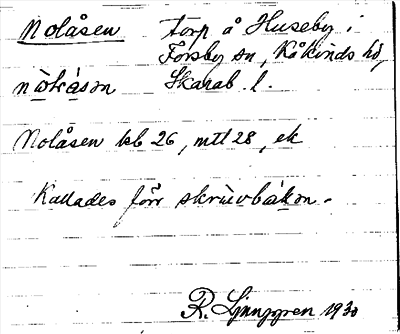 Nolåsen torp å Huseby i
Forsby sn, Kåkinds hd,
nɷ̀lɑ́sən Skarab. l.
Nolåsen kb 26, mtl 28, ek
Kallades förr skrùvbákən.-
R. Ljunggren 1930